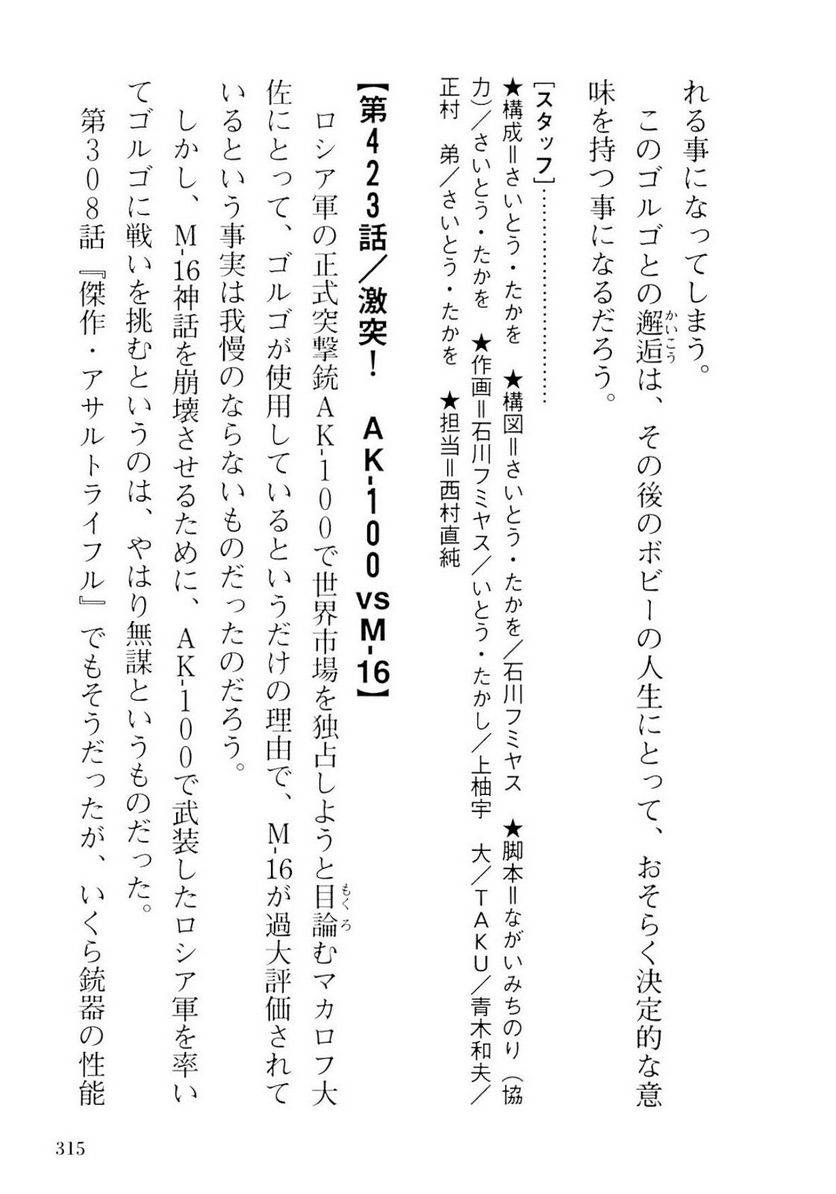 れる事になってしまう。
このゴルゴとの邂逅は、その後のボビーの人生にとって、おそらく決定的な意
かいこう
味を持つ事になるだろう。
［スタッフ］……………………………
★構成＝さいとう・たかを　★構図＝さいとう・たかを／石川フミヤス　★脚本＝ながいみちのり（協
力）／さいとう・たかを　★作画＝石川フミヤス／いとう・たかし／上柚宇　大／TAKU／青木和夫／
正村　弟／さいとう・たかを　★担当＝西村直純
【第423話／激突！　AK-100 vs M-16】
ロシア軍の正式突撃銃AK-100で世界市場を独占しようと目論むマカロフ大
もくろ
佐にとって、ゴルゴが使用しているというだけの理由で、M-16が過大評価されて
いるという事実は我慢のならないものだったのだろう。
しかし、M-16神話を崩壊させるために、AK-100で武装したロシア軍を率い
てゴルゴに戦いを挑むというのは、やはり無謀というものだった。
第308話『傑作・アサルトライフル』でもそうだったが、いくら銃器の性能
315